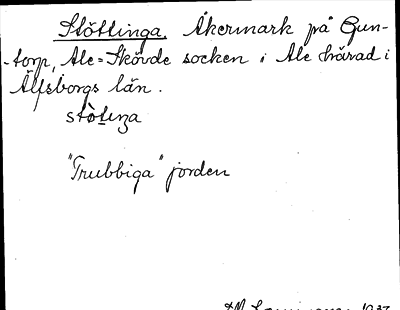 Stöttinga. Åkermark på Gun-
-torp, Ale-Skövde socken i Ale härad i
Älfsborgs län.
stötiŋa
"Trubbiga" jorden
1937